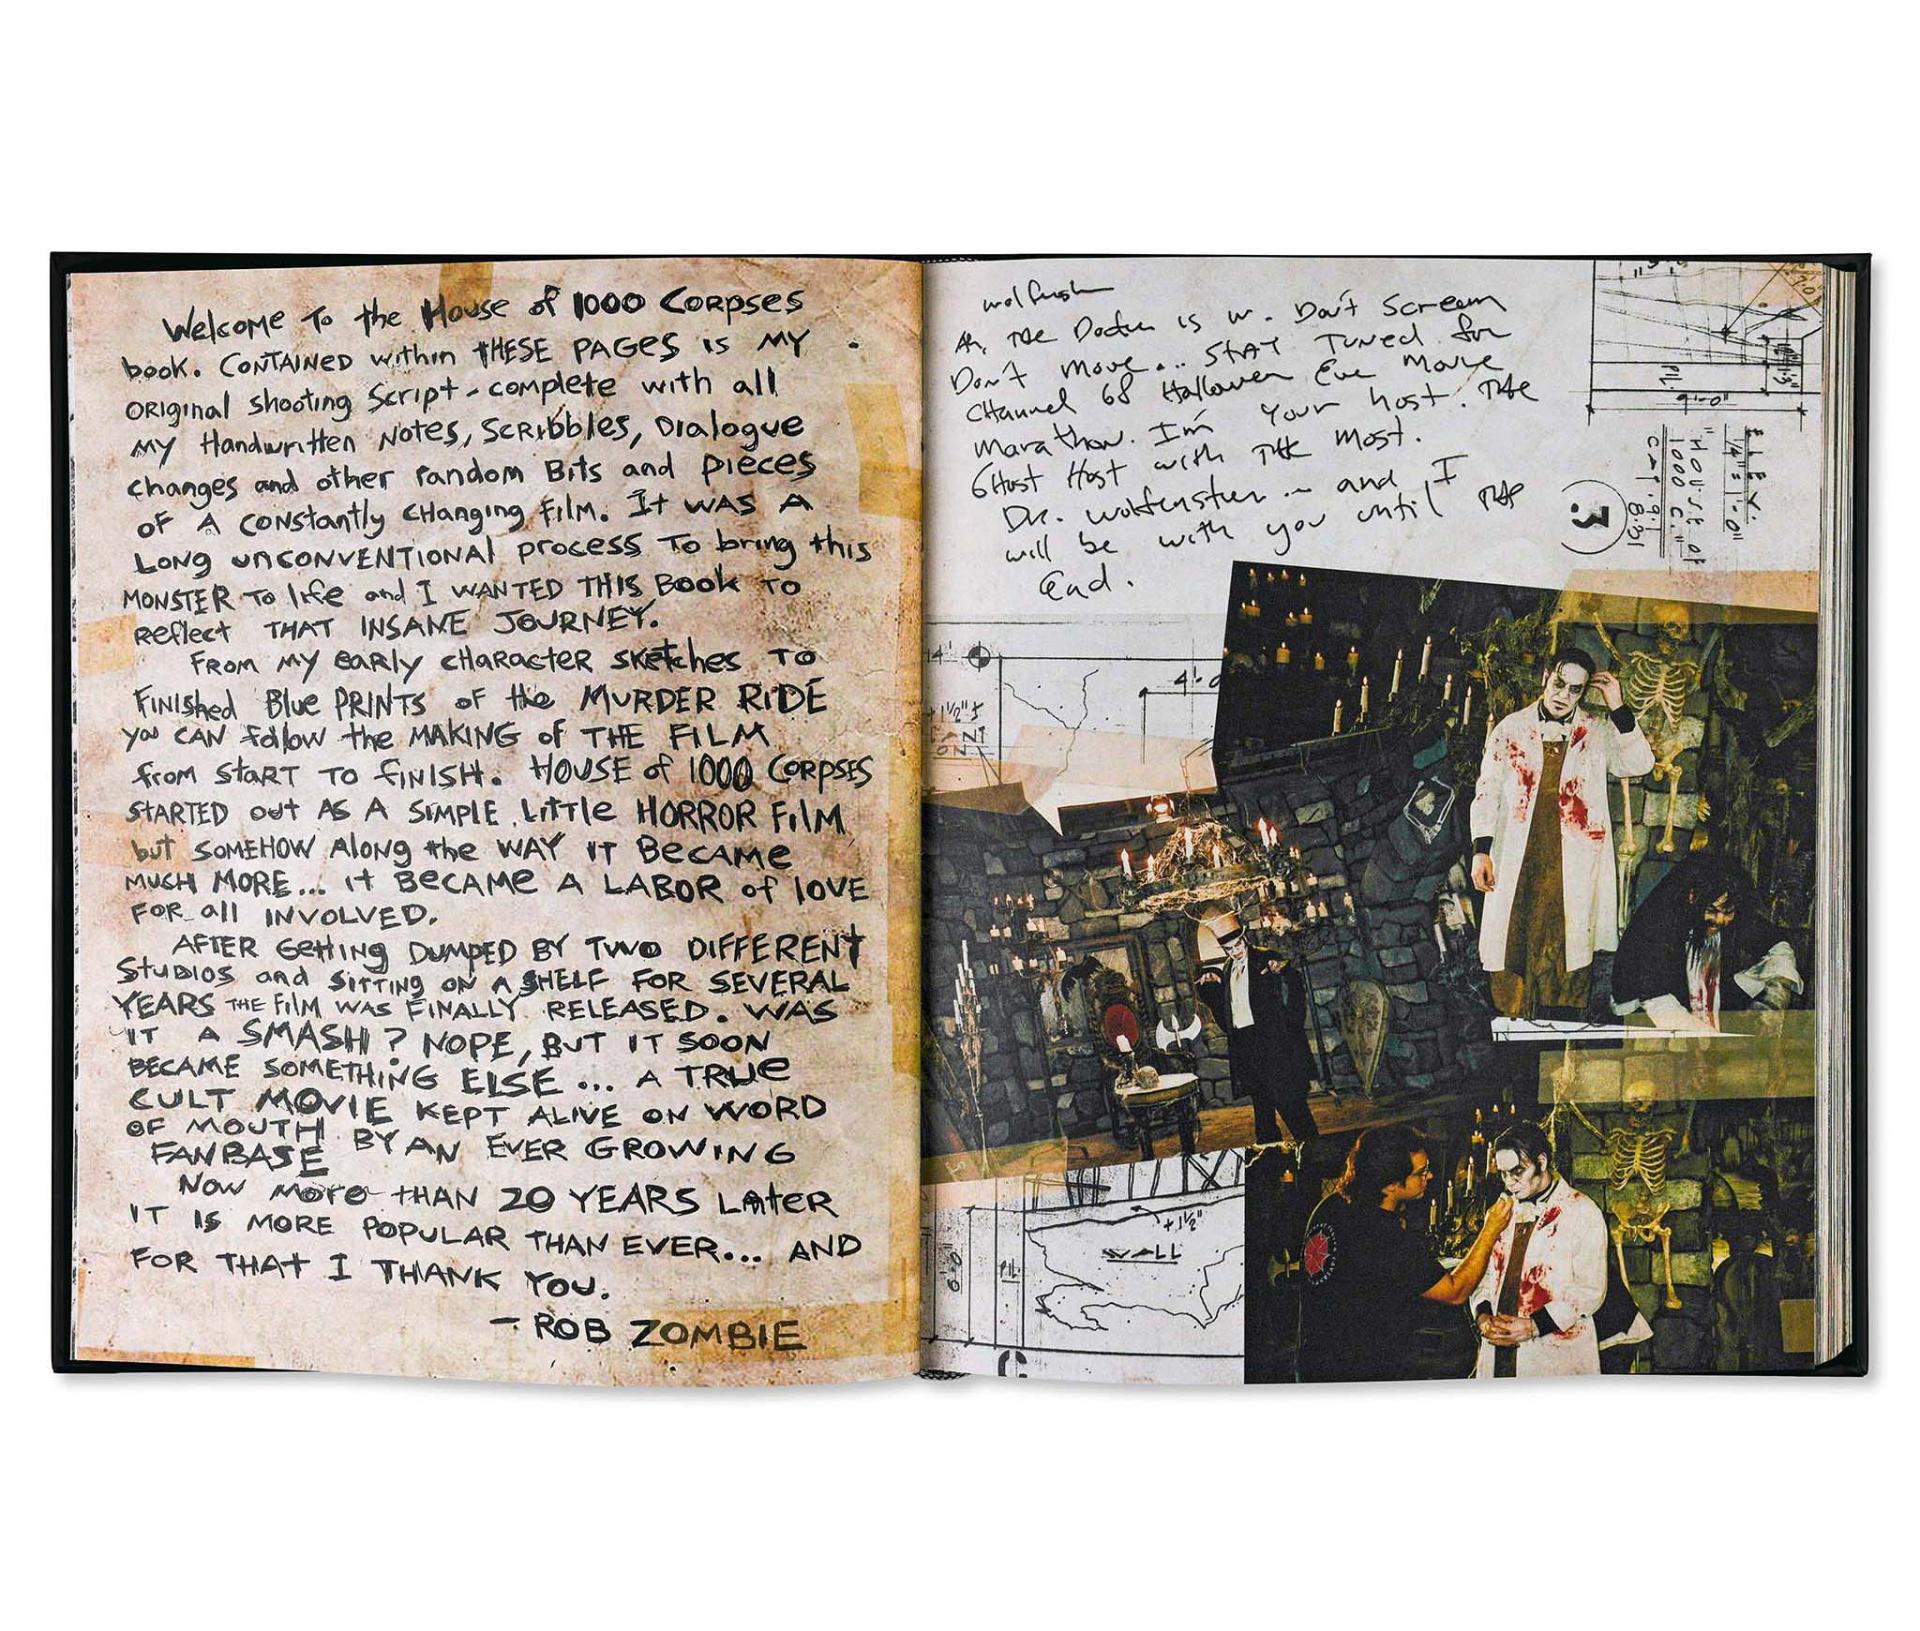 Welcome To the House of 1000 Corpses
book. CONTAINED within THESE PAGES is MY
ORIGINAL shooting Script - complete with all
MY Handwritten Notes, Scribbles, Dialogue
changes and other random Bits and pieces
OF A CONSTANTLY CHANGING FILM. It WAS A
LONG UNCONVENTIONAL process To bring this
MONSTER To life and I WANTED THIS Book TO
Reflect THAT INSANE JOURNEY.
FROM MY EARLY CHARACTER SKETCHES TO
FINISHED Blue PRINTS of the MURDER RIDE
you CAN follow the MAKING of THE FILM
from START TO FINISH. HOUSE of 1000 CORPSES
STARTED out AS A SIMPLE Little HORROR FILM
but SOMEHOW Along the WAY IT BECAME
MUCH MORE... it BECAME A LABOR of love
FOR all INVOLVED.
AFTER Getting DUMPED BY TWO DIFFERENT
STUDIOS and SITTING ON A SHELF FOR SEVERAL
YEARS THE FILM WAS FINALLY RELEASED. WAS
IT A SMASH? NOPE, BUT IT SOON
BECAME SOMETHING ELSE... A TRUE
CULT MOVIE KEPT ALIVE ON WORD
OF MOUTH BY AN EVER GROWING
FANBASE
NOW MORE THAN 20 YEARS LATER
IT IS MORE POPULAR THAN EVER... AND
FOR THAT I THANK YOU.
- ROB ZOMBIE
Ah, The Doctor is in. Don't Scream
Don't move... STAY TUNED for
Channel 68 Halloween Eve Movie
Marathon. I'm your host. The
Ghost Host with THE most.
Dr. Wolfenstein... and I
will be with you until THE
End.
ELEV.
1/4"=1'-0"
"HOUSE of
1000 C."
3
9'-0"
PL.
14'
4'-0
+1 1/2"
WALL
+1 1/2"
PL.